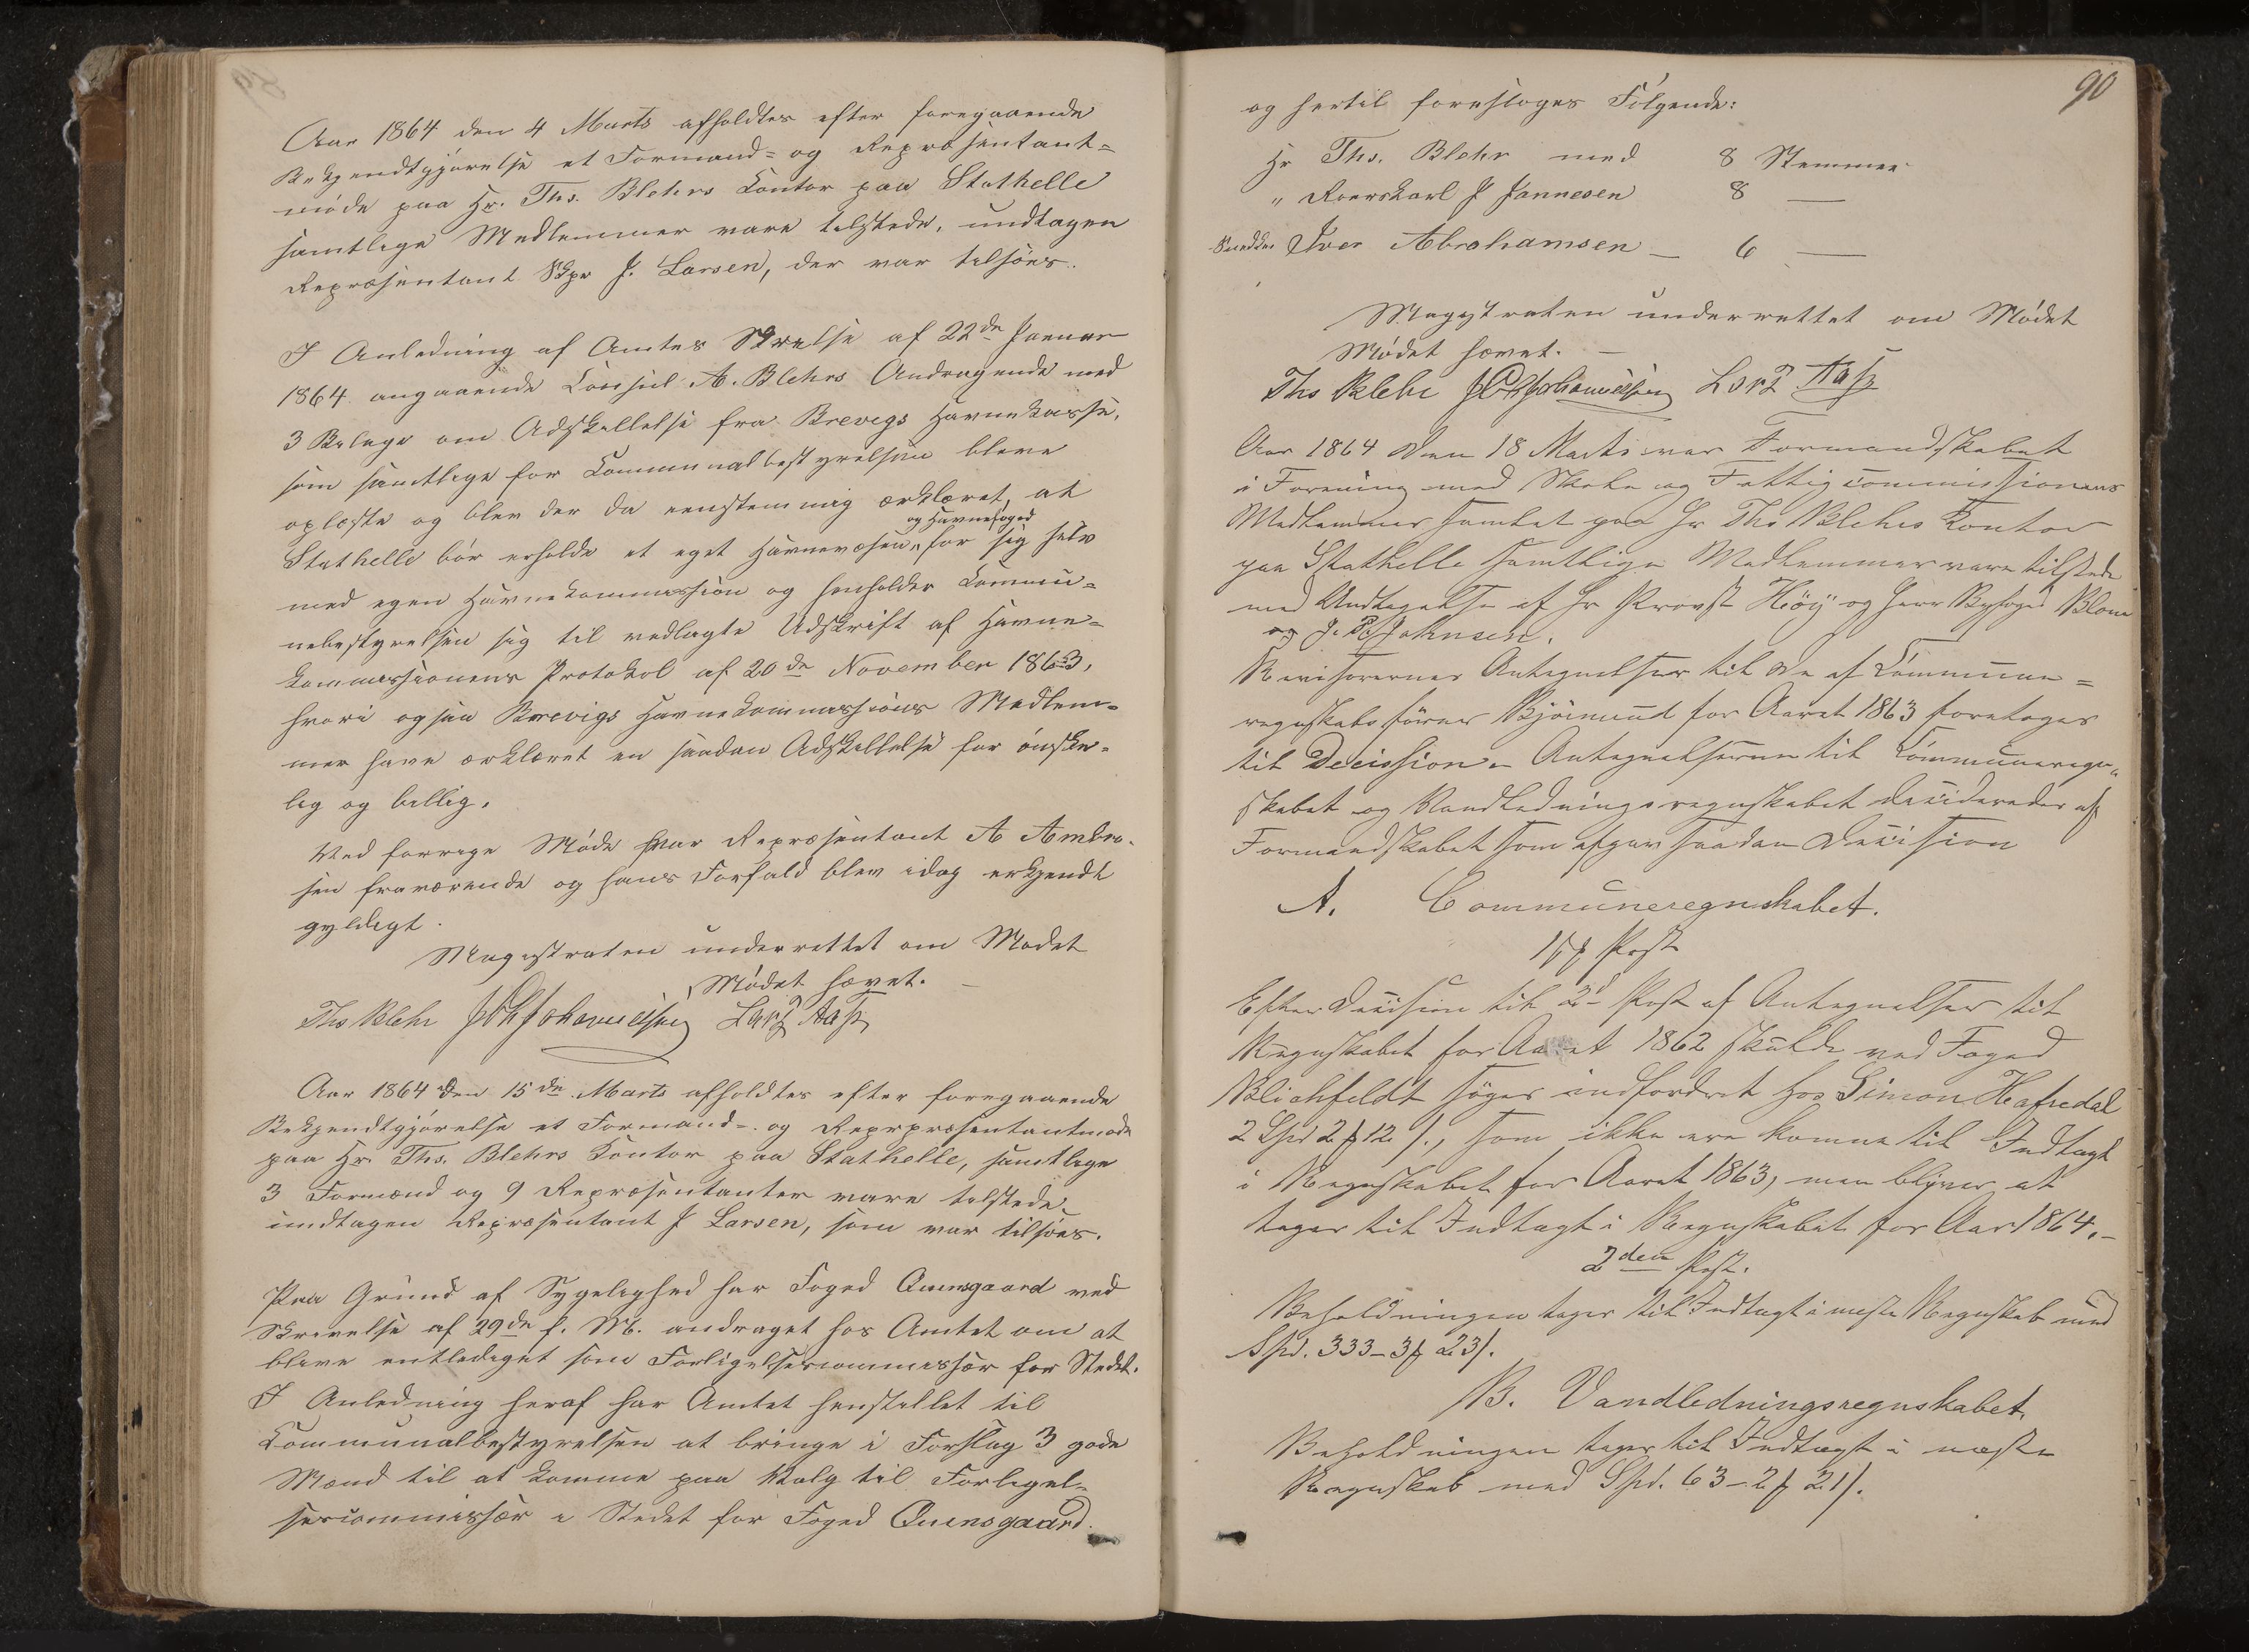 Aar 1864 den 4 Marts afholdtes efter foregaaende
Bekjendtgjørelse et Formand- og Repræsentant-
møde paa Hr. Ths. Blehrs Contor paa Stathelle
samtlige Medlemmer vare tilstede, undtagen
Repræsentant Skpr J. Larsen, der var tilsöes.
I Anledning af Amtes Skrivelse af 22de Januar
1864 angaaende Consul A. Blehrs Andragende med
3 Bilage om Adskillelse fra Brevigs Havnekasse,
som samtlige for Communalbestyrelsen bleve
oplæste og blev der da eenstemmig erklæret, at
og Havnefoged
Stathelle bör erholde et eget Havnevæsen, for sig selv
med egen Havnekommission og henholder Commu-
nebestyrelsen sig til vedlagte Udskrift af Havne-
kommissionens Protokol af 20de November 1863,
hvori ogsaa Brevigs Havnekommissions Medlem-
mer have erklæret en saadan Adskillelse for önske-
lig og billig.
Ved forrige Møde var Repræsentant A Ambro-
sen fraværende og hans Forfald blev idag erkjendt
gyldigt.
Magistraten underrettet om Mødet
Mødet hævet. —
Ths Blehr J Chr Johannessen Lars Aas
Aar 1864 den 15de Marts afholdtes efter foregaaende
Bekjendtgjørelse et Formand- og Repræsentantmøde
paa Hr. Ths. Blehrs Contor paa Stathelle, samtlige
3 Formænd og 9 Repræsentanter vare tilstede,
undtagen Repræsentant J Larsen, som var tilsöes.
Paa Grund af Sygelighed har Foged Quensgaard ved
Skrivelse af 29de f. M. andraget hos Amtet om at
blive entlediget som Forligelsescommissær for Stedet.
I Anledning heraf har Amtet henstillet til
Communalbestyrelsen at bringe i Forslag 3 gode
Mænd til at komme paa Valg til Forligel-
sescommissær i Stedet for Foged Quensgaard.
90
og hertil foresloges Følgende:
Hr Ths. Blehr med 8 Stemmer
" J Jannesen 8 —
Snedker Iver Abrahamsen — 6 —
Magistraten underrettet om Mødet
Mødet hævet. —
Ths Blehr J Chr Johannessen Lars Aas
Aar 1864 den 18 Marts var Formandskabet
i Forening med Skole og Fattigcommissionens
Medlemmer samlet paa Hr Ths Blehrs Kontor
paa Stathelle samtlige Medlemmer vare tilstede
med Undtagelse af Hr Provst Höÿ og Herr Byfoged Blom
og J. P. Johnsen.
Revisorernes Antegnelser til de af Commune-
regnskabsfører Björnund for Aaret 1863 foretoges
til Decission. Antegnelserne til Communeregn-
skabet og Vandledningsregnskabet decideredes af
Formandskabet som afgav saadan Decision
A. Communeregnskabet.
1ste Post
Efter Decision til 2d Post af Antegnelser til
Regnskabet for Aaret 1862 skulde ved Foged
Blichfeldt söges indfordret hos Simon Hafredal
2 Spd 2 ₰ 12 s., som ikke ere komne til Indtægt
i Regnskabet for Aaret 1863, men bliver at
tages til Indtægt i Regnskabet for Aar 1864. —
2den Post.
Beholdningen tages til Indtægt i næste Regnskab med
Spd. 333 – 3 ₰ 23 s.
B. Vandledningsregnskabet.
Beholdningen tages til Indtægt i næste
Regnskab med Spd. 63 – 2 ₰ 21 s.